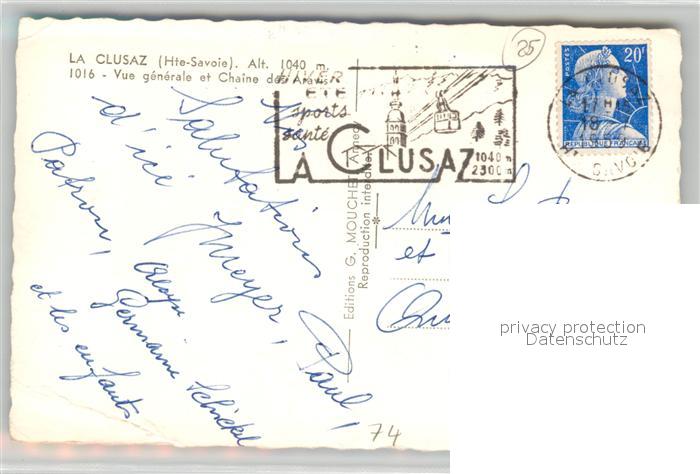 LA CLUSAZ (Hte-Savoie). Alt. 1040 m.
1016 - Vue générale et Chaîne des Aravis
25
HIVER
ÉTÉ
sports
santé
LA CLUSAZ
1040 m
2300 m
POSTES
20F
REPUBLIQUE FRANÇAISE
LA CLUSAZ
17H
18
SAVOIE
Editions G. MOUCHET
Reproduction interdite
Salutations
d'ici
Meyer, Paul,
Patron,
Germaine Schickel
et les enfants
et
74
privacy protection
Datenschutz